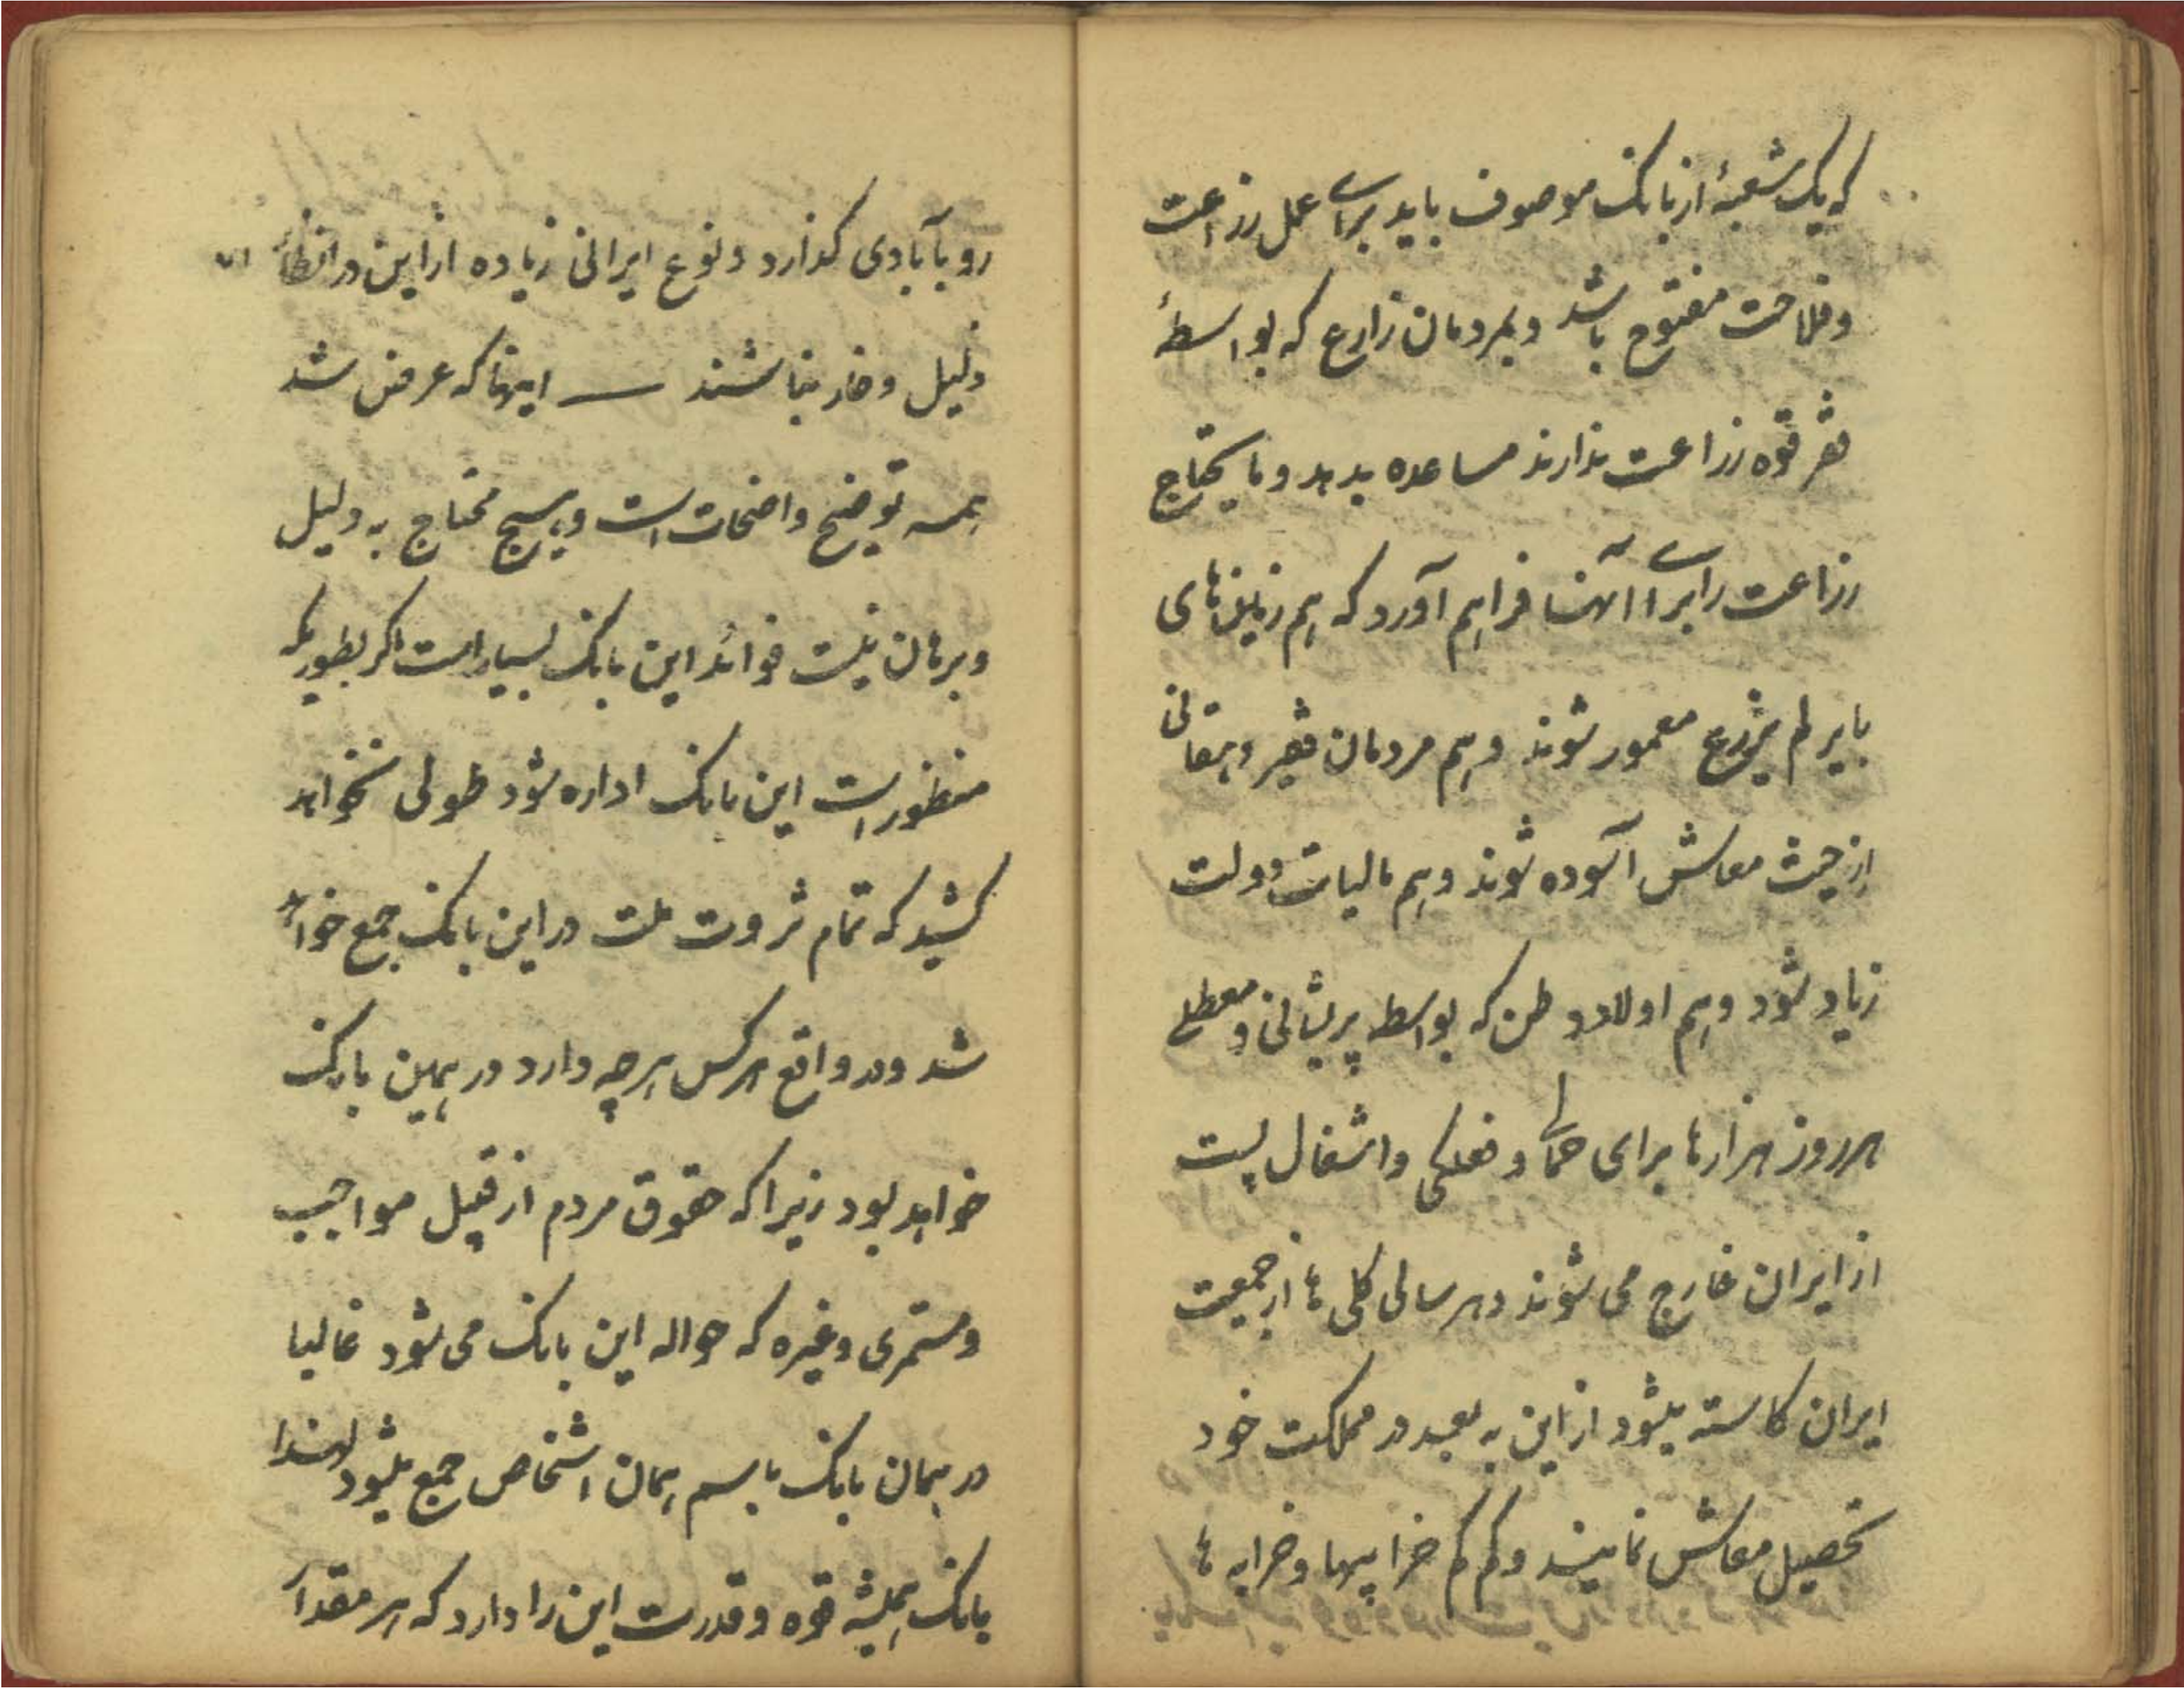 که یک شعبهٔ از بانک موصوف باید برای عمل زراعت
و فلاحت مفتوح باشد و بمردمان زارع که بواسطهٔ
فقر قوه زراعت ندارند مساعده بدهد و مایحتاج
زراعت را برای آنها فراهم آورد که هم زمین‌های
بایر لم یزرع معمور شوند و هم مردمان فقیر دهقانی
از حیث معاش آسوده شوند و هم مالیات دولت
زیاد شود و هم اولاد وطن که بواسطه پریشانی و معطلی
هر روز هزارها برای حمالی و فعلگی و اشغال پست
از ایران خارج می شوند و هر سالی کلی ها از جمعیت
ایران کاسته میشود از این به بعد در مملکت خود
تحصیل معاش نمایند و کم کم خرابیها و خرابه ها
رو بآبادی گذارد و نوع ایرانی زیاده از این در انظار
ذلیل و خار نباشند — اینها که عرض شد
همه توضیح واضحات است و هیچ محتاج به دلیل
و برهان نیست فوائد این بانک بسیار است اگر بطوریکه
منظور است این بانک اداره شود طولی نخواهد
کشید که تمام ثروت ملت در این بانک جمع خواهد
شد و در واقع هر کس هر چه دارد در همین بانک
خواهد بود زیرا که حقوق مردم از قبیل مواجب
و مستمری و غیره که حواله این بانک می شود غالبا
در همان بانک باسم همان اشخاص جمع میشود لهذا
بانک همیشه قوه و قدرت این را دارد که هر مقدار